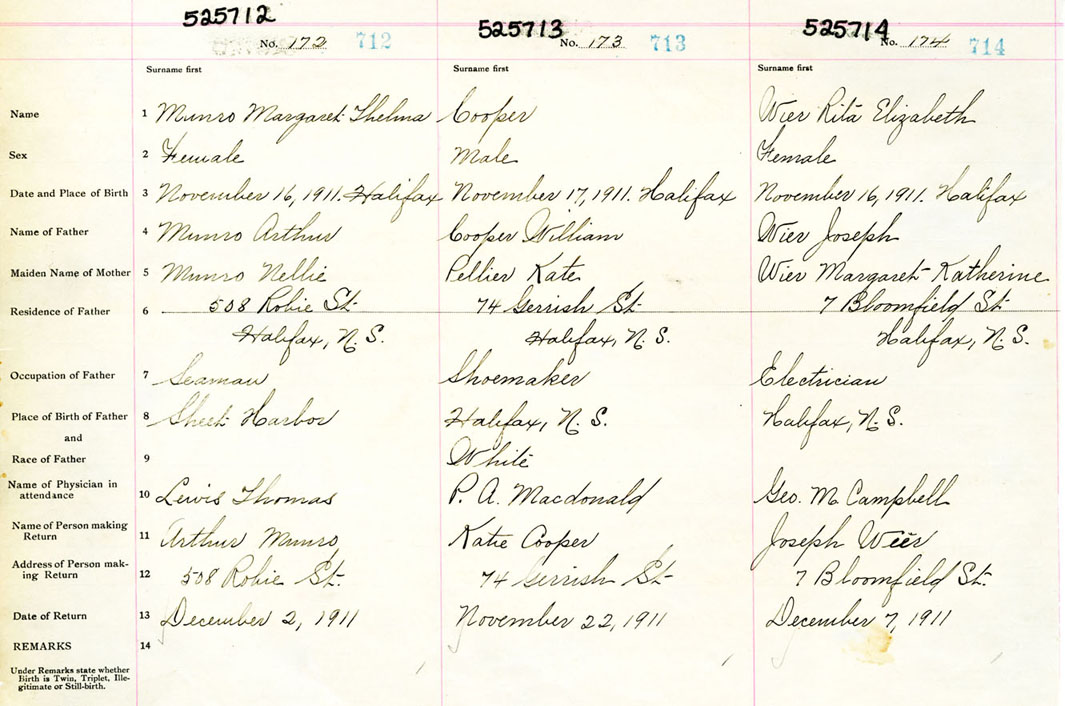 525712 525713 525714
No. 172 712 No. 173 713 No. 174 714
Surname first Surname first Surname first
Name 1 Munro Margaret Thelma Cooper Wier Rita Elizabeth
Sex 2 Female Male Female
Date and Place of Birth 3 November 16, 1911. Halifax November 17, 1911. Halifax November 16, 1911. Halifax
Name of Father 4 Munro Arthur Cooper William Wier Joseph
Maiden Name of Mother 5 Munro Nellie Pellier Kate Wier Margaret Katherine
Residence of Father 6 508 Robie St. 74 Gerrish St. 7 Bloomfield St.
Halifax, N.S. Halifax, N.S. Halifax, N.S.
Occupation of Father 7 Seaman Shoemaker Electrician
Place of Birth of Father 8 Sheet Harbor Halifax, N.S. Halifax, N.S.
and
Race of Father 9 White
Name of Physician in
attendance 10 Lewis Thomas P. A. Macdonald Geo. M Campbell
Name of Person making
Return 11 Arthur Munro Katie Cooper Joseph Wier
Address of Person mak-
ing Return 12 508 Robie St. 74 Gerrish St. 7 Bloomfield St.
Date of Return 13 December 2, 1911 November 22, 1911 December 7, 1911
REMARKS 14
Under Remarks state whether
Birth is Twin, Triplet, Ille-
gitimate or Still-birth.